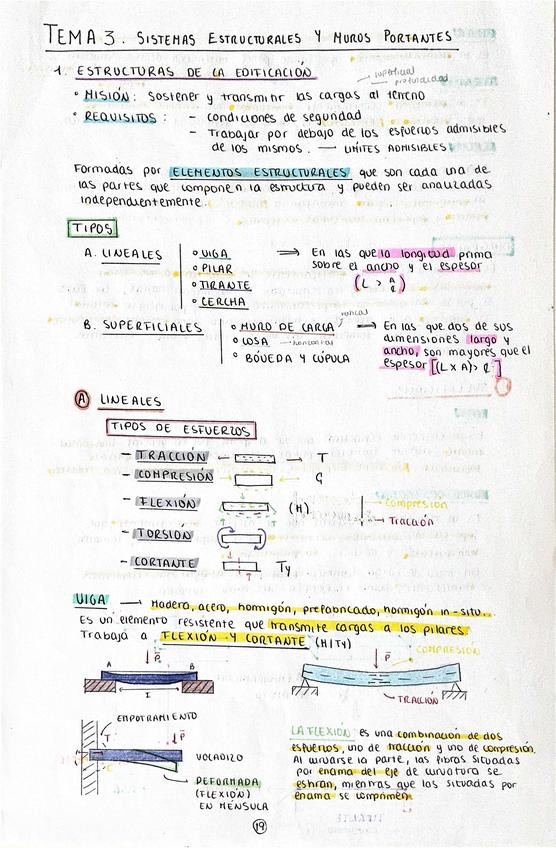 TEMA 3. SISTEMAS ESTRUCTURALES Y MUROS PORTANTES
1. ESTRUCTURAS DE LA EDIFICACIÓN
superficial
profundidad
° MISIÓN: Sostener y transmitir las cargas al terreno
° REQUISITOS: - condiciones de seguridad
- Trabajar por debajo de los esfuerzos admisibles
de los mismos. — LÍMITES ADMISIBLES
Formadas por ELEMENTOS ESTRUCTURALES que son cada una de
las partes que componen la estructura y pueden ser analizadas
independientemente.
TIPOS
A. LINEALES
° VIGA
° PILAR
° TIRANTE
° CERCHA
⇒ En las que la longitud prima
sobre el ancho y el espesor
B. SUPERFICIALES
° MURO DE CARGA
° LOSA — horizontal
° BÓVEDA Y CÚPULA
⇒ En las que dos de sus
dimensiones largo y
ancho, son mayores que el
espesor [(L x A) > e]
A LINEALES
TIPOS DE ESFUERZOS
- TRACCIÓN ← → T
- COMPRESIÓN → ← C
- FLEXIÓN (M)
Compresión
Tracción
- TORSIÓN
- CORTANTE Ty
VIGA → Madera, acero, hormigón, prefabricado, hormigón in-situ...
Es un elemento resistente que transmite cargas a los pilares.
Trabaja a FLEXIÓN Y CORTANTE (M/Ty)
A P B
P
COMPRESIÓN
TRACCIÓN
EMPOTRAMIENTO
T
P
VOLADIZO
C
DEFORMADA
(FLEXIÓN)
EN MÉNSULA
LA FLEXIÓN es una combinación de dos
esfuerzos, uno de tracción y uno de compresión.
Al curvarse la parte, las fibras situadas
por encima del eje de curvatura se
estiran, mientras que las situadas por
encima se comprimen
19